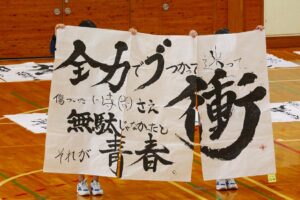 全力でぶつかって
傷ついた時さえ
無駄じゃなかったと
それが青春。
衝